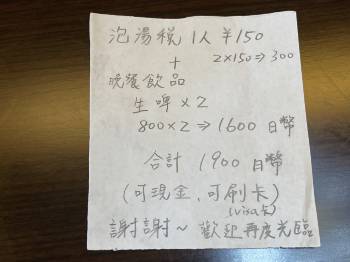 泡湯稅 1人 ¥150
+ 2×150⇒300
晚餐飲品
生啤×2
800×2⇒1600 日幣
合計 1900 日幣
(可現金、可刷卡)
(visa卡)
謝謝~ 歡迎再度光臨